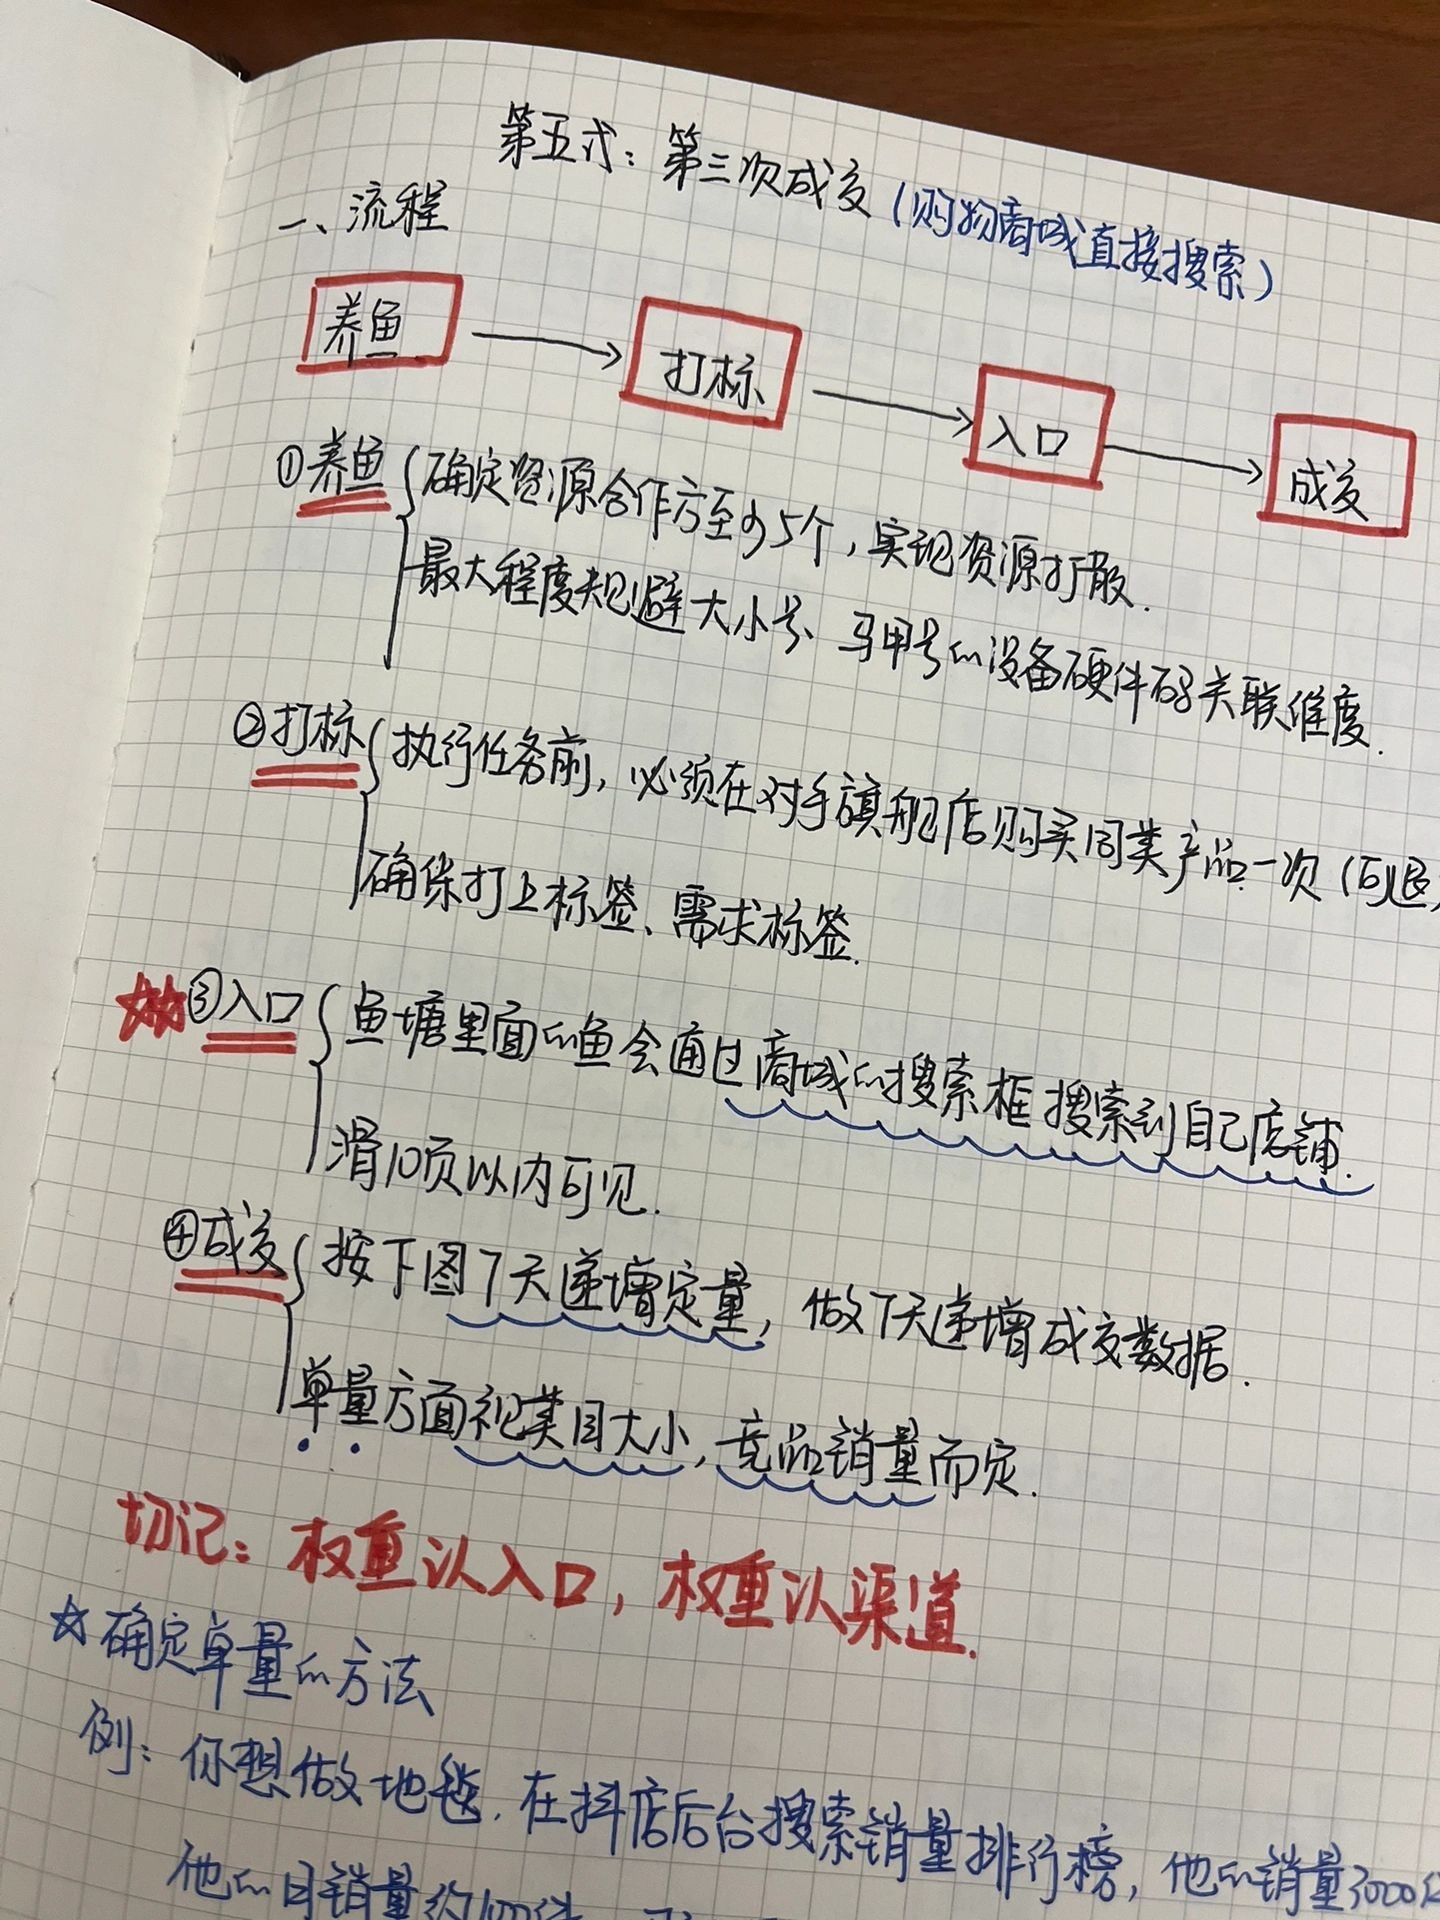 第五式：第三次成交（购物商城直接搜索）
一、流程
养鱼 → 打标 → 入口 → 成交
①养鱼 确定资源合作方至少5个，实现资源打散.
最大程度规避大小号、马甲号的设备硬件码关联维度.
②打标 执行任务前，必须在对手旗舰店购买同类产品一次（可退
确保打上标签、需求标签.
③入口 鱼塘里面的鱼会通过商城的搜索框搜索到自己店铺.
滑10页以内可见.
④成交 按下图7天递增定量，做7天递增成交数据.
单量方面视类目大小，竞品销量而定.
切记：权重认入口，权重认渠道.
☆确定单量的方法
例：你想做地毯.在抖店后台搜索销量排行榜，他的销量3000
他的日销量约100件